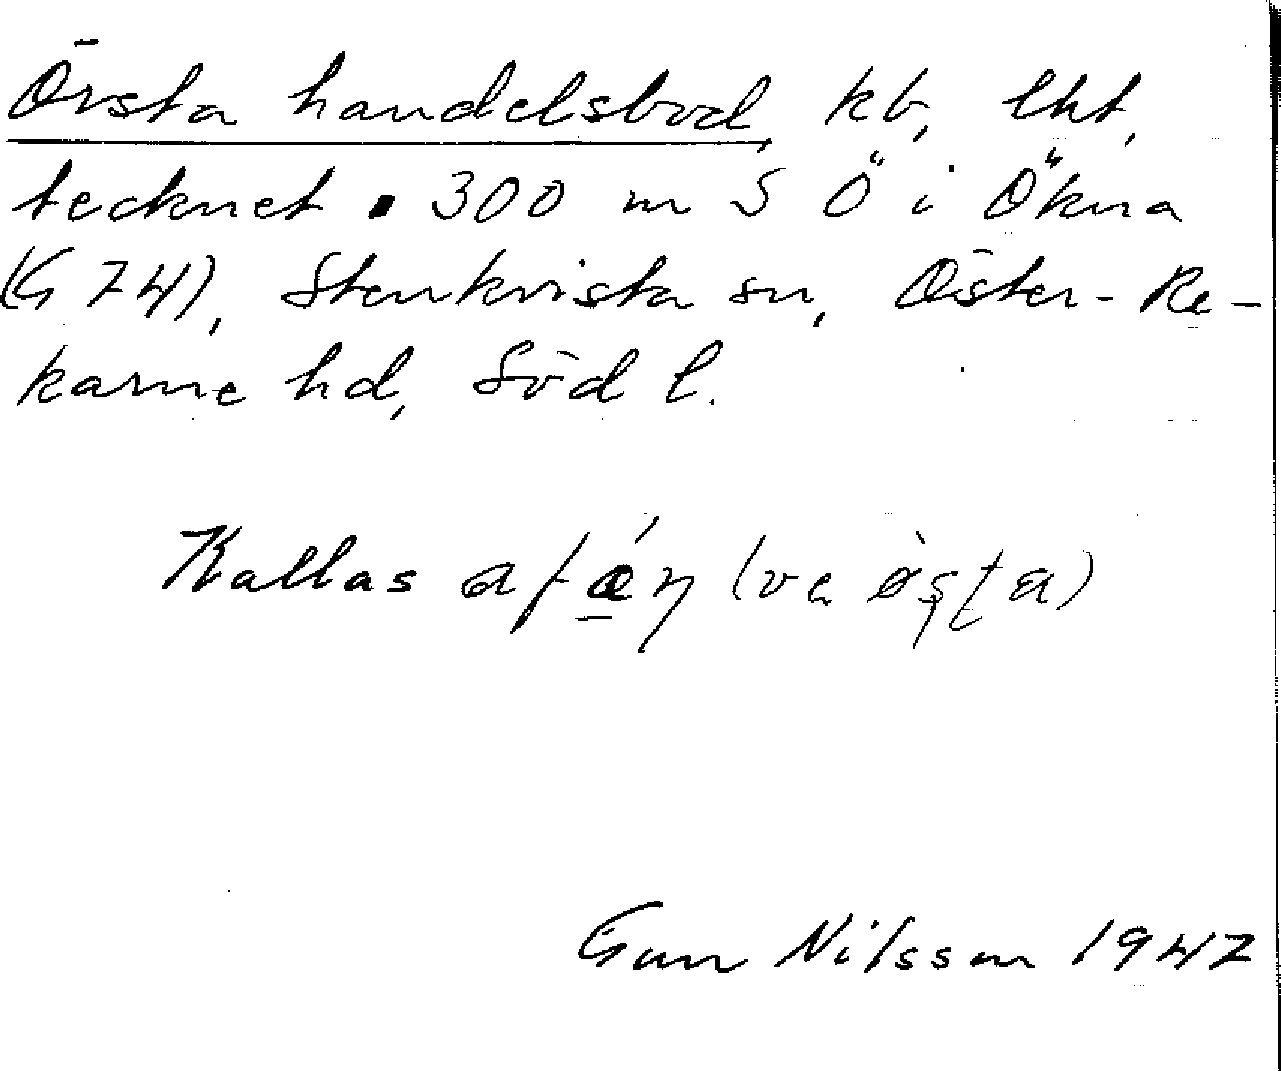 Örsta handelsbod, kb, lht,
tecknet ▪ 300 m S Ö i Ökna
(G 74), Stenkvista sn, Öster-Re-
karne hd, Söd l.
Kallas (va
Gun Nilsson 1947